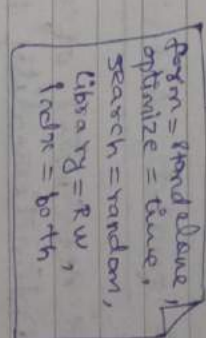 form = standalone,
optimize = time,
search = random,
library = RW,
Index = both.